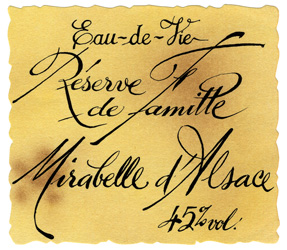 Eau-de-Vie
Réserve
de Famille
Mirabelle d'Alsace
45% vol.